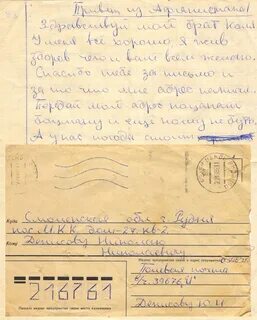 Привет из Афганистана!
Здравствуй мой брат Коля
У меня всё хорошо я жив
здоров чего и вам всем желаю.
Спасибо тебе за письмо и
за то что мне адрес
Передай мой адрес пацанам
и ещё кому не будь.
А у нас погода стоит
Куда Смоленская обл г Рудня
пос. МКК дом-27-кв-2
Кому Денисову Николаю
Николаевичу
Полевая почта
в/ч. 39676 "И"
Денисову Ю Н
216761